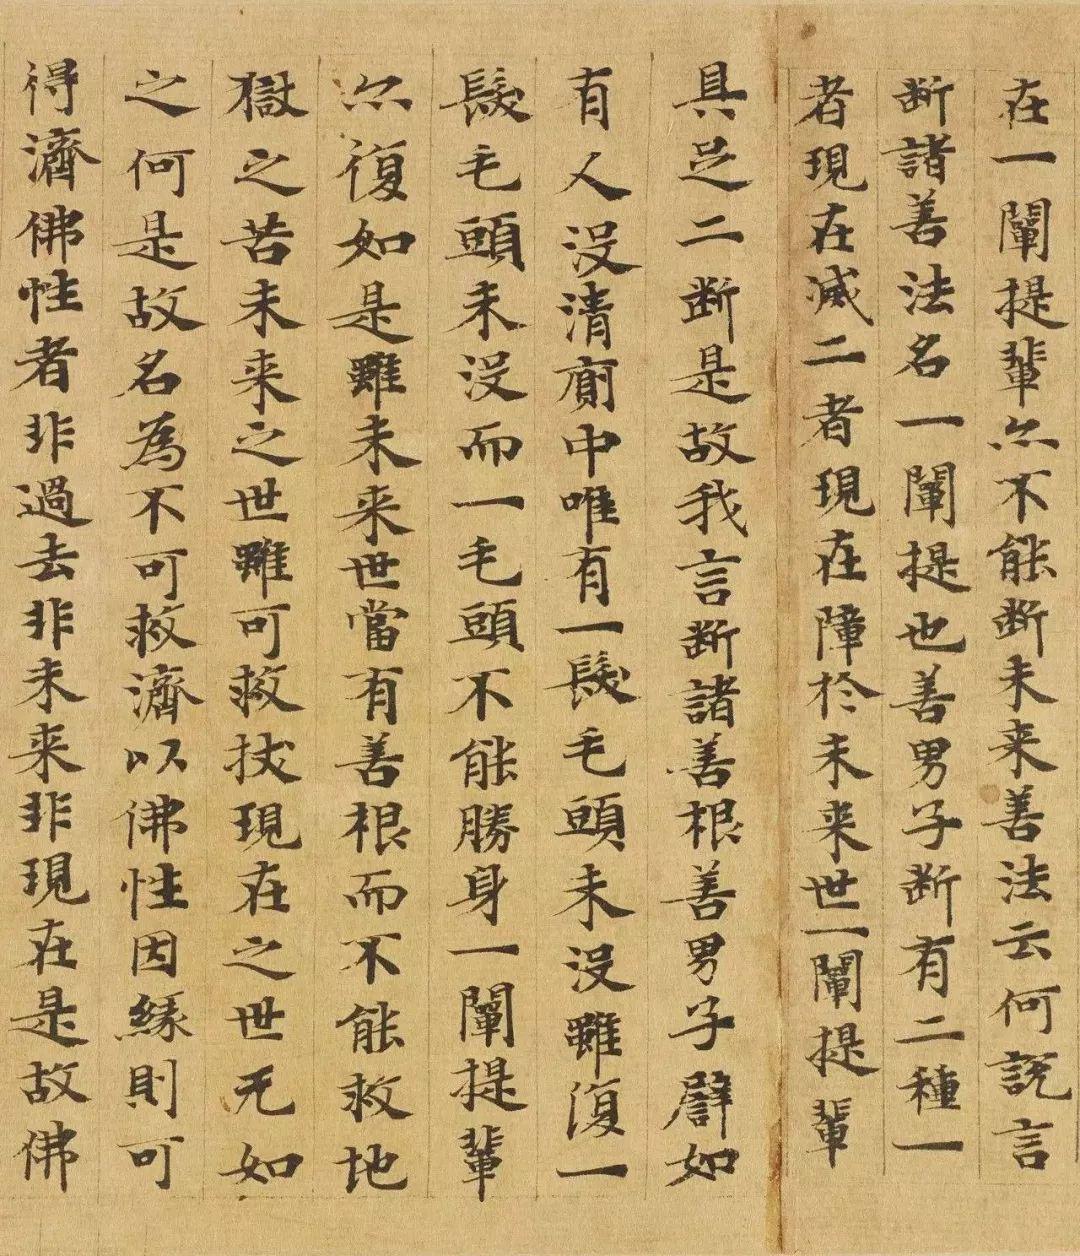 在一闡提輩亦不能断未来善法云何說言
断諸善法名一闡提也善男子断有二種一
者現在滅二者現在障於未来世一闡提輩
具足二断是故我言断諸善根善男子譬如
有人没清廁中唯有一髮毛頭未没雖復一
髮毛頭未没而一毛頭不能勝身一闡提輩
亦復如是雖未来世當有善根而不能救地
獄之苦未来之世雖可救拔現在之世无如
之何是故名為不可救濟以佛性因緣則可
得濟佛性者非過去非未来非現在是故佛